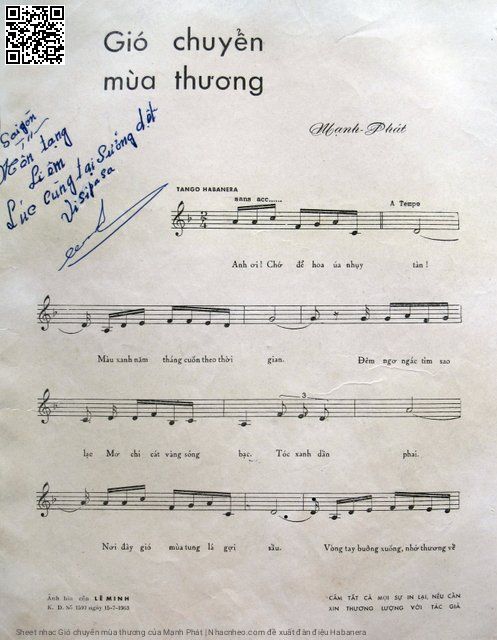 Gió chuyển
mùa thương
Mạnh-Phát
Saigon
Li êm
Lúc cung tại Sưởng dệt
Visipasa
TANGO HABANERA
sans acc......
A Tempo
2 4
Anh ơi! Chớ để hoa úa nhụy tàn!
Màu xanh năm tháng cuốn theo thời gian. Đêm ngơ ngác tìm sao
3
lạc Mơ chi cát vàng sóng bạc. Tóc xanh dần phai.
Nơi đây gió mùa tung lá gợi sầu. Vòng tay buông xuống, nhớ thương về
Ảnh bìa của LÊ MINH
K. D. Số 1591 ngày 15-7-1963
CẤM TẤT CẢ MỌI SỰ IN LẠI, NẾU CẦN
XIN THƯƠNG LƯỢNG VỚI TÁC GIẢ
Sheet nhạc Gió chuyển mùa thương của Mạnh Phát | Nhacnheo.com đề xuất đàn điệu Habanera